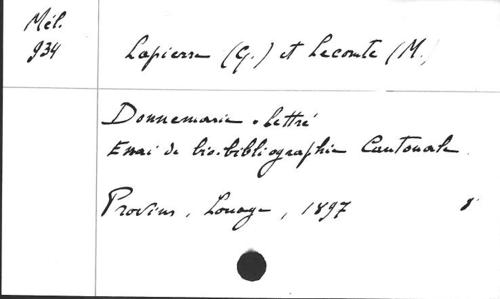 Mél.
934
Lapierre (G.) et Lecomte (M.)
Donnemarie - lettré
Essai de bio-bibliographie Cantonale.
Provins, Louage, 1897 8